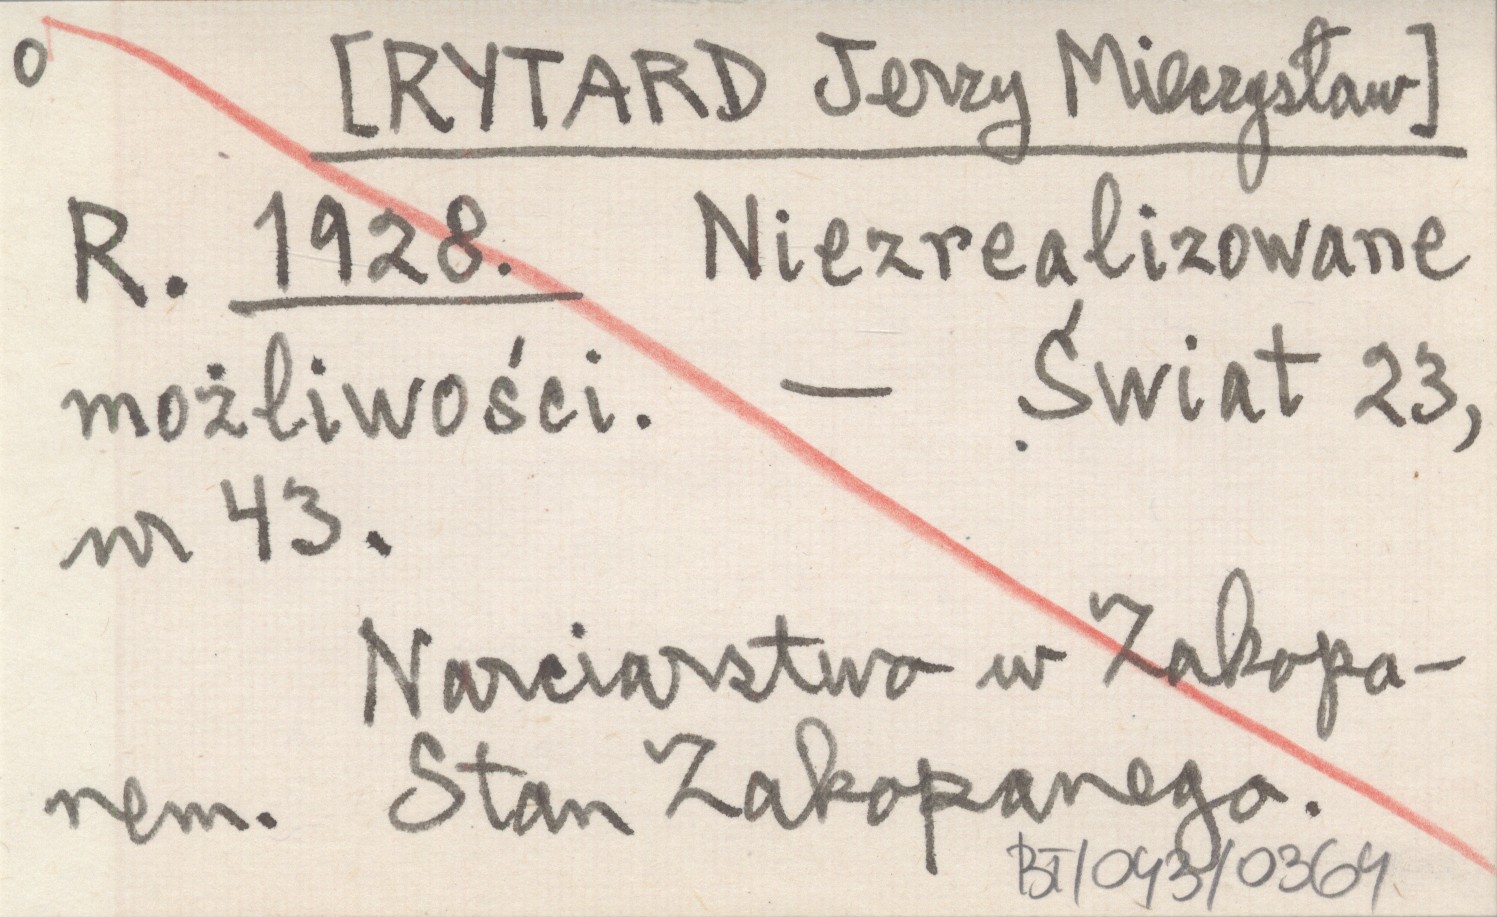 o [RYTARD Jerzy Mieczysław]
R. 1928. Niezrealizowane
możliwości. — Świat 23,
nr 43.
Narciarstwo w Zakopa-
nem. Stan Zakopanego.
BI/043/0364